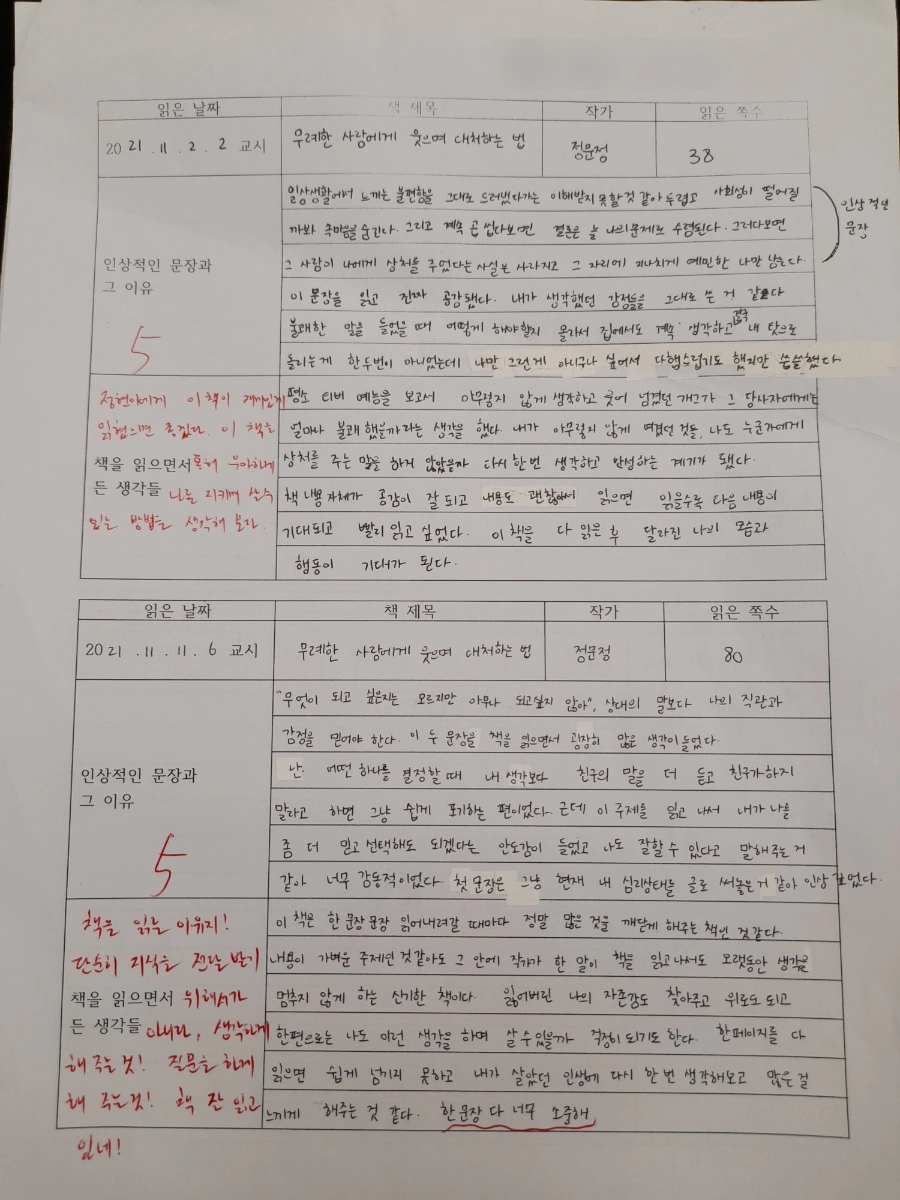 읽은 날짜 책 제목 작가 읽은 쪽수
2021 . 11 . 2 . 2 교시 무례한 사람에게 웃으며 대처하는 법 정문정 38
인상적인 문장과
그 이유
5
일상생활에서 느끼는 불편함을 그대로 드러냈다가는 이해받지 못할것 같아 두렵고 사회성이 떨어질
까봐 속마음을 숨긴다. 그리고 계속 곱씹다보면 결론은 늘 나의문제로 수렴된다. 그러다보면
그 사람이 나에게 상처를 주었다는 사실은 사라지고 그 자리에 지나치게 예민한 나만 남는다.
인상적인
문장
이 문장을 읽고 진짜 공감됐다. 내가 생각했던 감정들을 그대로 쓴 거 같았다
불쾌한 말을 들었을 때 어떻게 해야할지 몰라서 집에서도 계속 생각하고 결국 내 탓으로
돌리는게 한두번이 아니었는데 나만 그런게 아니구나 싶어서 다행스럽기도 했지만 씁쓸했다
책을 읽으면서
든 생각들
정현이에게 이 책이 재미있게
읽혔으면 좋겠다. 이 책을
혹여 우아하게
나를 지키며 살수
있는 방법을 생각해 보자.
평소 티비 예능을 보고서 아무렇지 않게 생각하고 웃어 넘겼던 개그가 그 당사자에게는
얼마나 불쾌 했을까라는 생각을 했다. 내가 아무렇지 않게 여겼던 것들, 나도 누군가에게
상처를 주는 말을 하지 않았을까 다시 한번 생각하고 반성하는 계기가 됐다.
책 내용 자체가 공감이 잘 되고 내용도 괜찮아서 읽으면 읽을수록 다음 내용이
기대되고 빨리 읽고 싶었다. 이 책을 다 읽은 후 달라진 나의 모습과
행동이 기대가 된다.
읽은 날짜 책 제목 작가 읽은 쪽수
2021 . 11 . 11 . 6 교시 무례한 사람에게 웃으며 대처하는 법 정문정 80
인상적인 문장과
그 이유
5
"무엇이 되고 싶은지는 모르지만 아무나 되고싶지 않아", 상대의 말보다 나의 직관과
감정을 믿어야 한다. 이 두 문장을 책을 읽으면서 굉장히 많은 생각이 들었다.
난. 어떤 하나를 결정할 때 내 생각보다 친구의 말을 더 듣고 친구가 하지
말라고 하면 그냥 쉽게 포기하는 편이었다. 근데 이 주제를 읽고 나서 내가 나를
좀 더 믿고 선택해도 되겠다는 안도감이 들었고 나도 잘할 수 있다고 말해주는 거
같아 너무 감동적이었다. 첫 문장은 그냥 현재 내 심리상태를 글로 써놓은거 같아 인상 깊었다.
책을 읽으면서
든 생각들
책을 읽는 이유지!
단순히 지식을 전달 받기
위해서가
아니라, 생각하게
해 주는것! 질문을 하게
해 주는것! 책 잘 읽고
있네!
이 책은 한 문장 문장 읽어내려갈 때마다 정말 많은 것을 깨닫게 해주는 책인 것같다.
내용이 가벼운 주제인 것같아도 그 안에 작가가 한 말이 책을 읽고나서도 오랫동안 생각을
멈추지 않게 하는 신기한 책이다. 잃어버린 나의 자존감도 찾아주고 위로도 되고
한편으로는 나도 이런 생각을 하며 살 수 있을까 걱정이 되기도 한다. 한페이지를 다
읽으면 쉽게 넘기지 못하고 내가 살았던 인생에 다시 한 번 생각해보고 많은 걸
느끼게 해주는 것 같다. 한 문장 다 너무 소중해